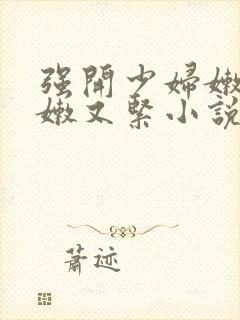 强開少婦嫩
嫩又緊小說
蕭迹